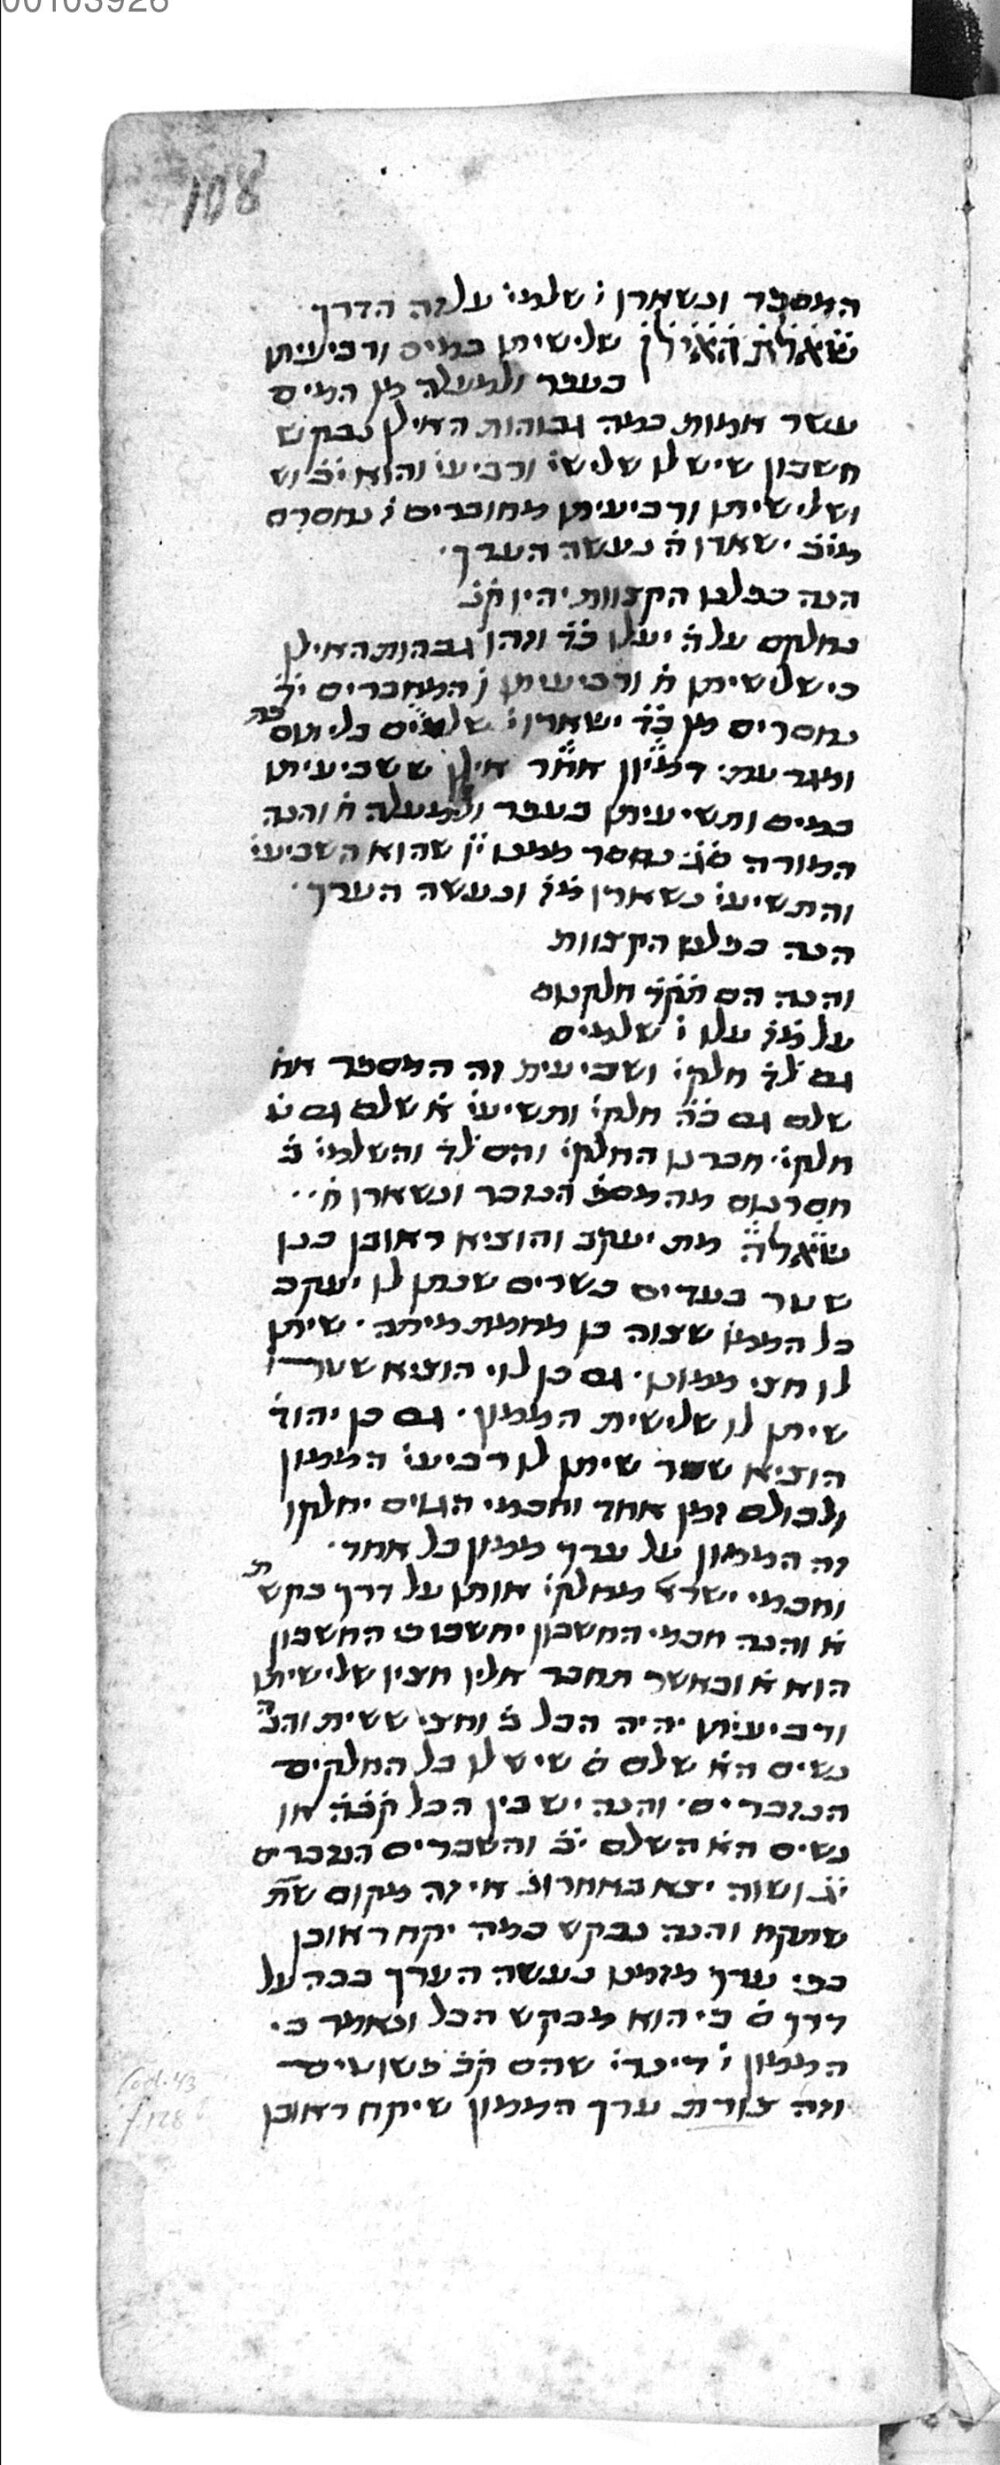 00103926
108
המספר ונשארו י׳ שלמי׳ על זה הדרך
שאלת האילן שלישיתו במים ורביעיתו
בעפר ולמעלה מן המים
עשר אמות כמה גבהות האילן נבקש
חשבון שיש לו שלישי׳ ורביעי׳ והוא י״ב וש
ושלישיתו ורביעיתו מחוברים ז׳ נחסרם
מי״ב ישארו ה׳ נעשה הערך
הנה כפלנו הקצוות יהיו ק״כ
נחלקם על ה׳ יעלו כ״ד וזהו גבהות האילן
כי שלישיתו ח׳ ורביעיתו ו׳ המחברים י״ד
נחסרים מן כ״ד ישארו י׳ שלמים בלי תוס
פת
ומגרעת׃ דמיון אחר אילן ששביעיתו
במים ותשיעיתו בעפר ולמעלה ח׳ והנה
המורה ס״ג׃ נחסר ממנו י״ו שהוא השביעי׳
והתשיעי׳ נשארו מ״ז ונעשה הערך
הנה כפלנו הקצוות
והנה הם תק״ד חלקנום
על מ״ז עלו י׳ שלמים
גם ל״ד חלקי׳ ושביעית זה המספר א׳
שלם גם כ״ה חלקי׳ ותשיעי׳ א׳ שלם גם ט׳
חלקי׳ חברנו החלקי׳ והם ל״ד והשלמי׳ ב׳
חסרנום מהמספ׳ הנזכר ונשארו ח׳
שאלה מת יעקב והוציא ראובן בנו
שטר בעדים כשרים שנתן לו יעקב
כל הממו׳ שצוה בן מחמת מיתה שיתן
לו חצי ממונו גם כן לוי הוציא שטר
שיתן לו שלישית הממון גם כן יהוד׳
הוציא שטר שיתן לו רביעי׳ הממון
ולכולם זמן אחד וחכמי הגוים יחלקו
זה הממון על ערך ממון כל אחד
וחכמי ישר׳ מחלקי׳ אותו על דרך בקש
ת
א׳ והנה חכמי החשבון יחשבו כי החשבון
הוא א׳ וכאשר תחבר אליו חציו שלישיתו
ורביעיתו יהיה הכל ב׳ וחצי ששית והנ
ה
נשים הא׳ שלם ס׳ שיש לו כל החלקים
הנזכרים והנה יש בין הכל קכ״ה או
נשים הא׳ השלם י״ב והשברים הנזכרים
י״ג ושוה יצא באחרונ׳ אי זה מקום שת׳
שתקח והנה נבקש כמה יקח ראובן
כפי ערך מזמנו נעשה הערך ככה על
דרך ס׳ כי הוא מבקש הכל ונאמר כי
הממון י׳ דינרי׳ שהם ק״כ פשוטים
וזה צורת ערך הממון שיקח ראובן
Cod. 43
f. 128